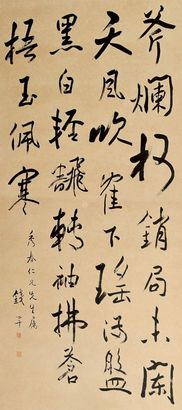 斧爛柯銷局未闌
天風吹隺下瑤滿盤
黑白輕翻轉袖拂蒼
梧玉佩寒
仁兄先生屬
錢